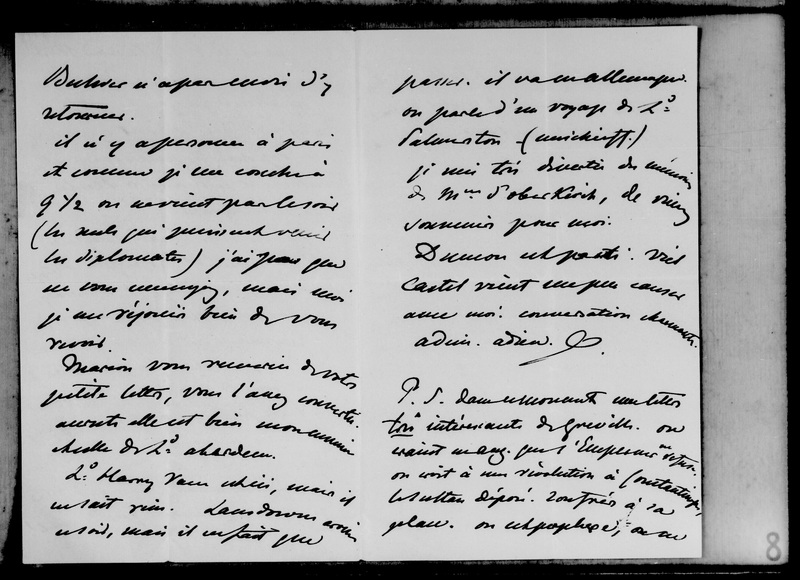 Bulwer n'a pas envie d'y
retourner.
il n'y a personne à paris
et comme je me couche à
9 1/2 on ne vient pas le soir
(les seuls qui puissent venir
les diplomates) j'ai peur que
ne vous ennuyez, mais moi
je me réjouis bien de vous
revoir.
Marion vous remercie de votre
petite lettre, vous l'avez
elle est bien
celle de Ld Aberdeen.
Ld Harry Vane est ici, mais il
ne sait rien. Lansdowne arrive
ce soir, mais il ne fait que
passer. il va en allemagne.
on parle d'un voyage de Ld
Palmerston (mischief!)
je suis très divertie des mémoires
de Mme d'Oberkirch, de vieux
souvenirs pour moi.
Dumon est parti. Viel
Castel vient un peu causer
avec moi. conversation charmante.
adieu. adieu.
P.S. dans ce moment une lettre
très intéressante de Greville. on
craint que l'Empereur ne refuse.
on croit à une révolution à Constantinople,
le sultan déposé. son frère à sa
place. on est perplexe, on ne
8